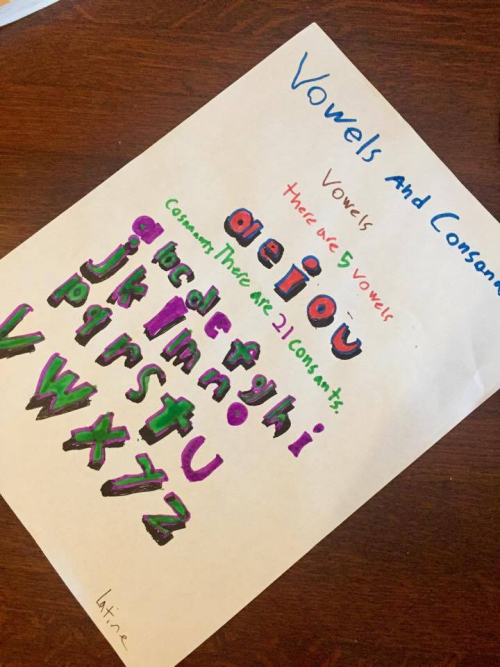 Vowels And Consona
Vowels
there are 5 vowels
a e i o u
Cosnants There are 21 consants.
a b c d e f g h i
j k l m n o
p q r s t u
v w x y z
latine